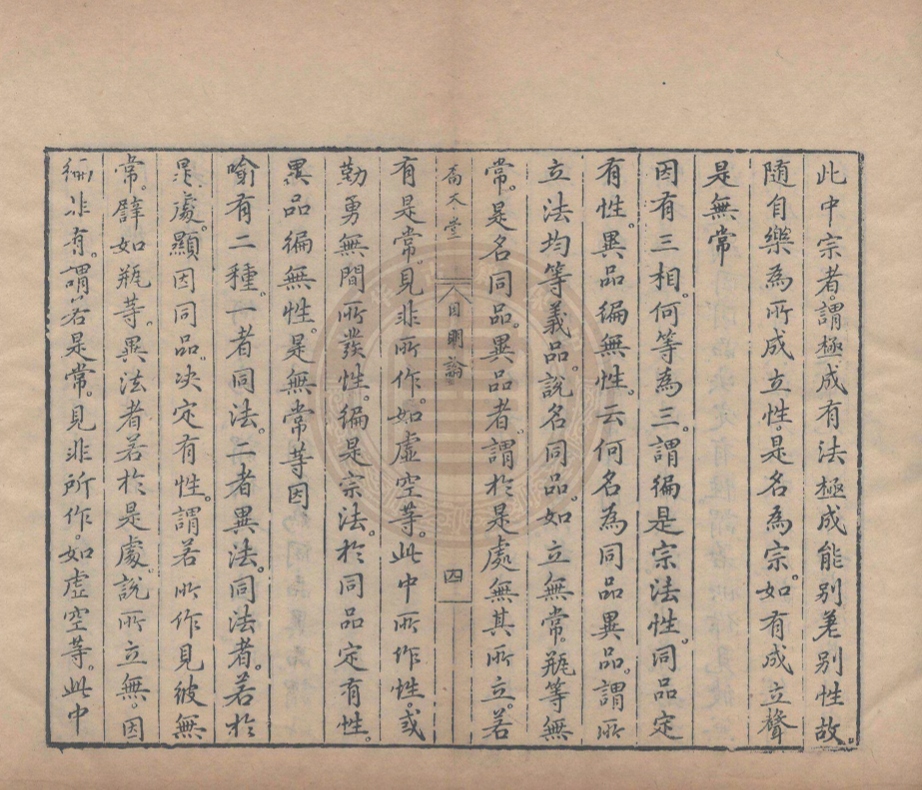 此中宗者。謂極成有法極成能別差別性故。
隨自樂為所成立性。是名為宗。如有成立聲
是無常
因有三相。何等為三。謂徧是宗法性。同品定
有性。異品徧無性。云何名為同品異品。謂所
立法均等義品。說名同品。如立無常。瓶等無
常。是名同品。異品者。謂於是處無其所立。若
喬天堂 因明論 四
有是常。見非所作。如虛空等。此中所作性或
勤勇無間所發性。徧是宗法。於同品定有性。
異品徧無性。是無常等因
喻有二種。一者同法。二者異法。同法者。若於
是處。顯因同品。决定有性。謂若所作見彼無
常。譬如瓶等。異法者若於是處。說所立無。因
徧非有。謂若是常。見非所作。如虛空等。此中